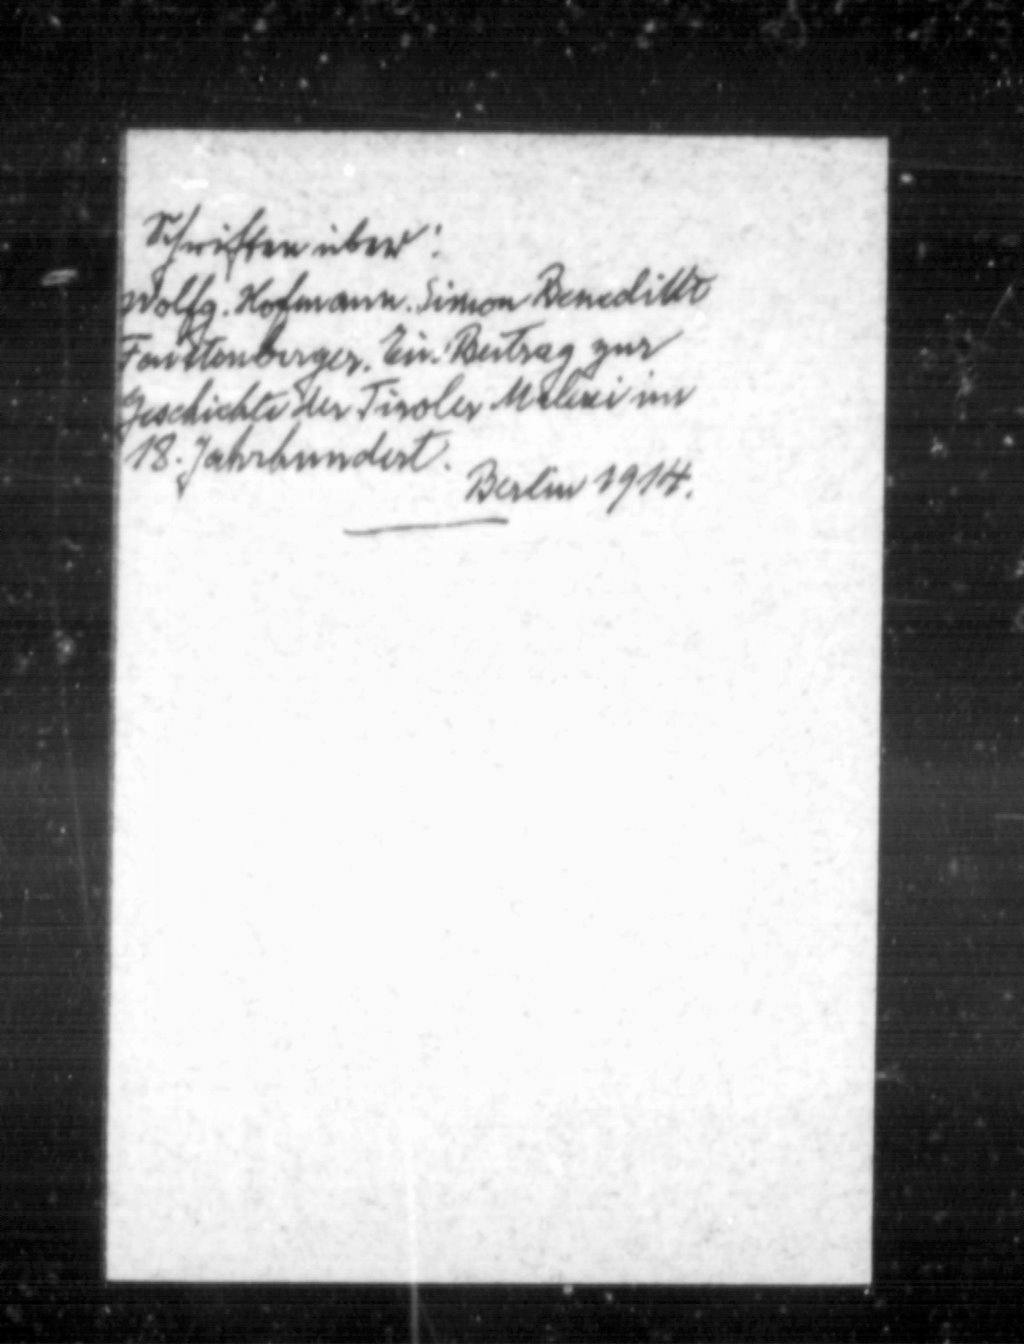 Schriften über:
Wolfg. Hofmann. Simon Benedikt
Faistenberger. Ein Beitrag zur
Geschichte der Tiroler Malerei im
18. Jahrhundert.
Berlin 1914.